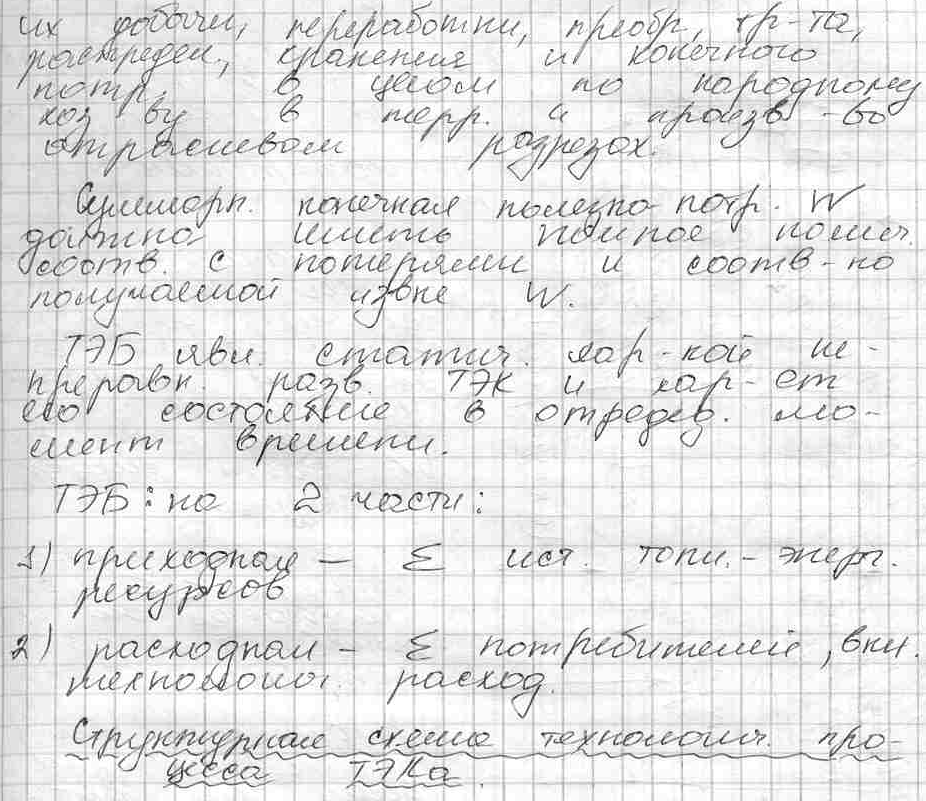 их добычи, переработки, преобр, тр-та,
распредел., хранения и конечного
потр. в целом по народному
хоз ву в терр. и произв -во
отраслевом разрезах.
Суммарн. конечная полезно потр. W
должно иметь полное колич.
соотв. с потерями и соотв-но
получаемой извне W.
ТЭБ явл. статич. хар-кой не-
прерывн. разв. ТЭК и хар-ет
его состояние в определ. мо-
мент времени.
ТЭБ : на 2 части:
1) приходная – Σ ист. топл.-энерг.
ресурсов
2) расходная – Σ потребителей, вкл.
технологич. расход.
Структурная схема технологич. про-
цесса ТЭКа.